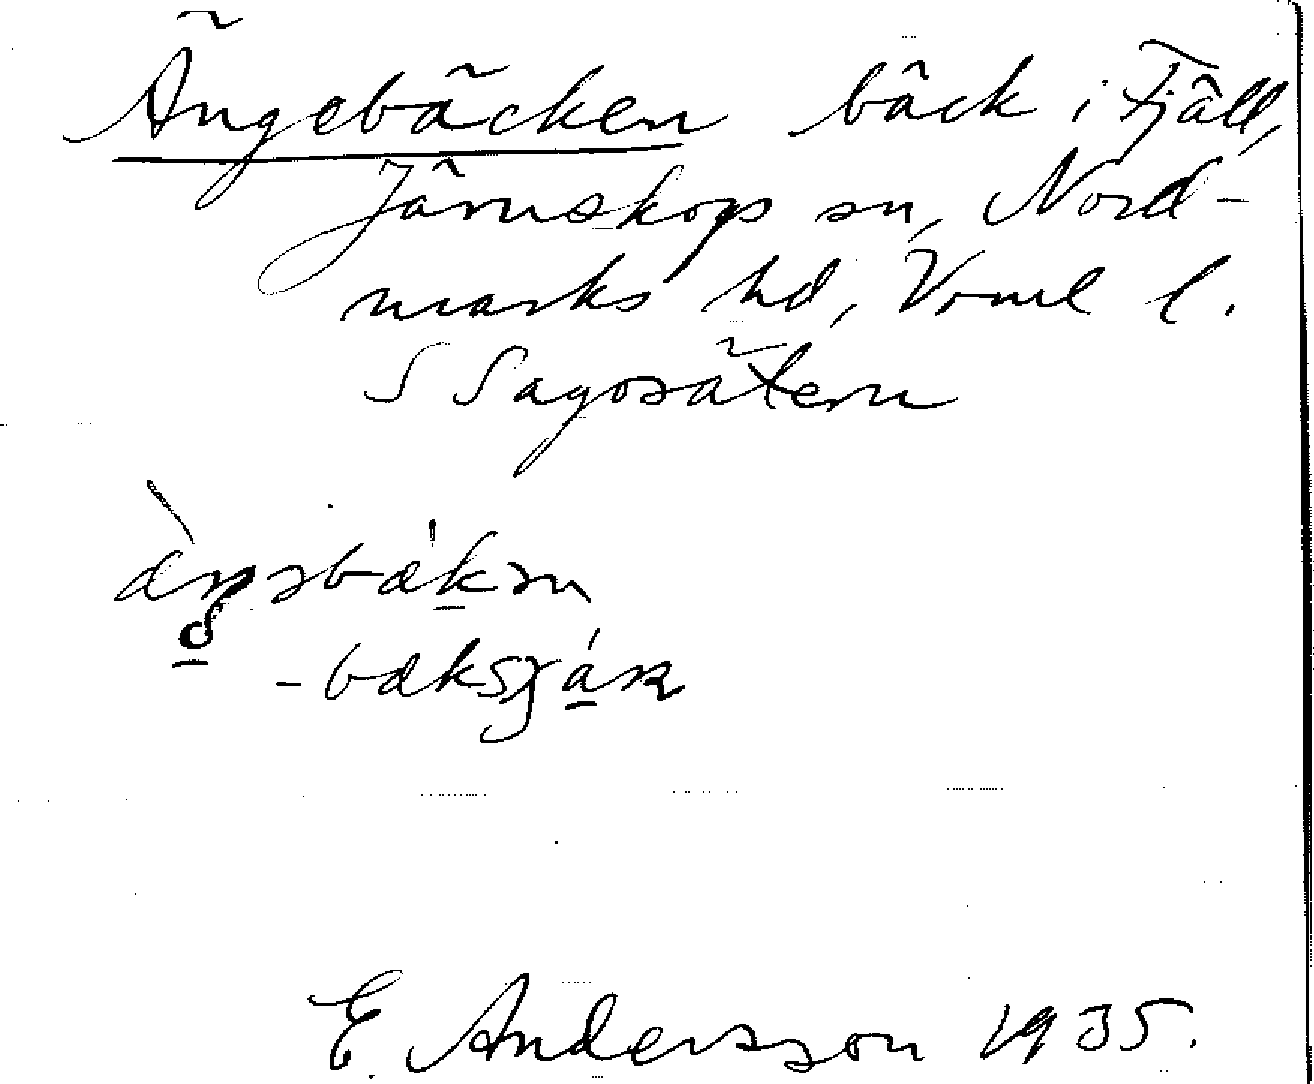 Ängebäcken bäck i Fjäll,
Järnskogs sn, Nord-
marks hd, Vrml l.
S Sagosätern
E. Andersson 1935.